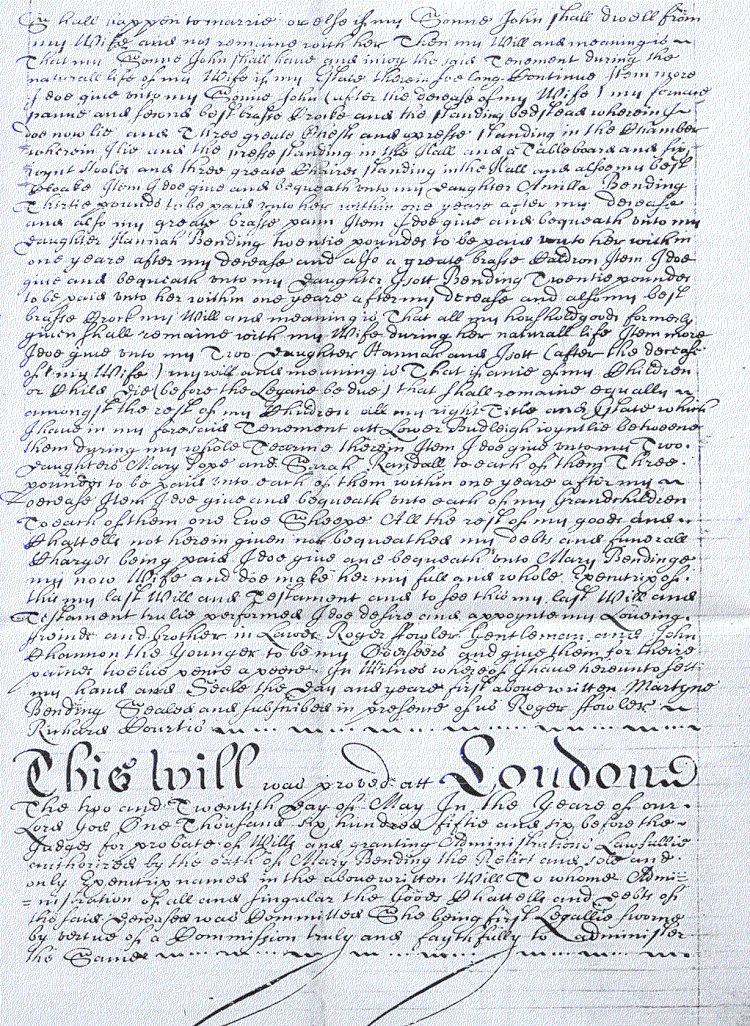 shall happen to marrie or else if my Sonne John shall dwell from
my Wife and not remaine with her Then my Will and meaning is
That my Sonne John shall have and injoy the said Tenement during the
naturall life of my Wife if my Estate therein soe long Continue Item more
I doe give unto my Sonne John (after the decease of my Wife) my
panne and second best brasse Crocke and the standing bedstead wherein I
doe now lie and Three greate Chests and a presse standing in the Chamber
wherein I lie and the presse standing in the Hall and a Tableboard and six
joynt stooles and three greate Chaires standing in the Hall and alsoe my best
Cloake Item I doe give and bequeath unto my daughter Annilla Bending
Thirtie pounds to be paid unto her within one yeare after my decease
and also my greate brasse pann Item I doe give and bequeath unto my
daughter Hannah Bending twentie poundes to be paid unto her within
one yeare after my decease and also a greate brasse Caldron Item I doe
give and bequeath unto my daughter Isott Bending Twentie poundes
to be paid unto her within one yeare after my decease and also my best
brasse Crock my Will and meaning is That all my housholdgoods formerly
given shall remaine with my Wife during her naturall life Item more
I doe give unto my Two daughter Hannah and Isott (after the decease
of my Wife) my will and meaning is That if anie of my Children
or Child die (before the Legacie be due) that shall remaine equally
amongst the rest of my Children all my right Title and Estate which
I have in my foresaid Tenement att Lower Budleigh joyntlie betweene
them during my whole Tearme therein Item I doe give unto my Two
daughters Mary Pope and Sarah Randall to each of them Three
pounds to be paid unto each of them within one yeare after my
decease Item I doe give and bequeath unto each of my Grandchildren
To each of them one Ewe Sheepe All the rest of my goods and
Chattells not herein given nor bequeathed my debts and funerall
Charges being paid I doe give and bequeath unto Mary Bendinge
my now Wife and doe make her my full and whole Executrix of
this my last Will and Testament and to see this my last Will and
Testament trulie performed I doe desire and appoynte my Loveing
freinds and brother in Lawes Roger ffowler Gentleman and John
Channon the Younger to be my Overseers and give them for theire
paines twelve pence a peece In Witnes whereof I have hereunto sett
my hand and Seale the day and yeare first abovewritten Martyne
Bending Sealed and subscribed in presence of us Roger ffowler
Richard
This Will was proved att London
The two and Twentith day of May In the Yeare of our
Lord God One Thousand six hundred fiftie and six before the
Judges for probate of Wills and granting Administrations Lawfullie
authorized by the oath of Mary Bending the Relict and sole and
only Executrix named in the abovewritten Will To whome Admi=
=nistration of all and singular the Goods Chattells and debts of
the said deceased was Committed She being first Legallie sworne
by vertue of a Commission truly and faythfully to administer
the Same